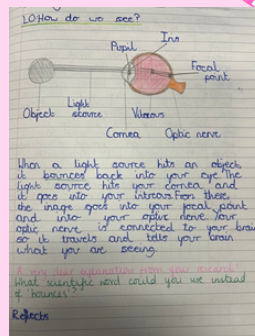 LO: How do we see?
Iris
Pupil
Focal point
Light source
Object
Vitreous
Cornea
Optic nerve
When a light source hits an object,
it bounces back into your eye. The
light source hits your cornea, and
it goes into your vitreous. From there,
the image goes into your focal point
and into your optic nerve. Your
optic nerve is connected to your brain
so it travels and tells your brain
what you are seeing.
A very clear explanation from your research!
What scientific word could you use instead
of 'bounces'?
Reflects